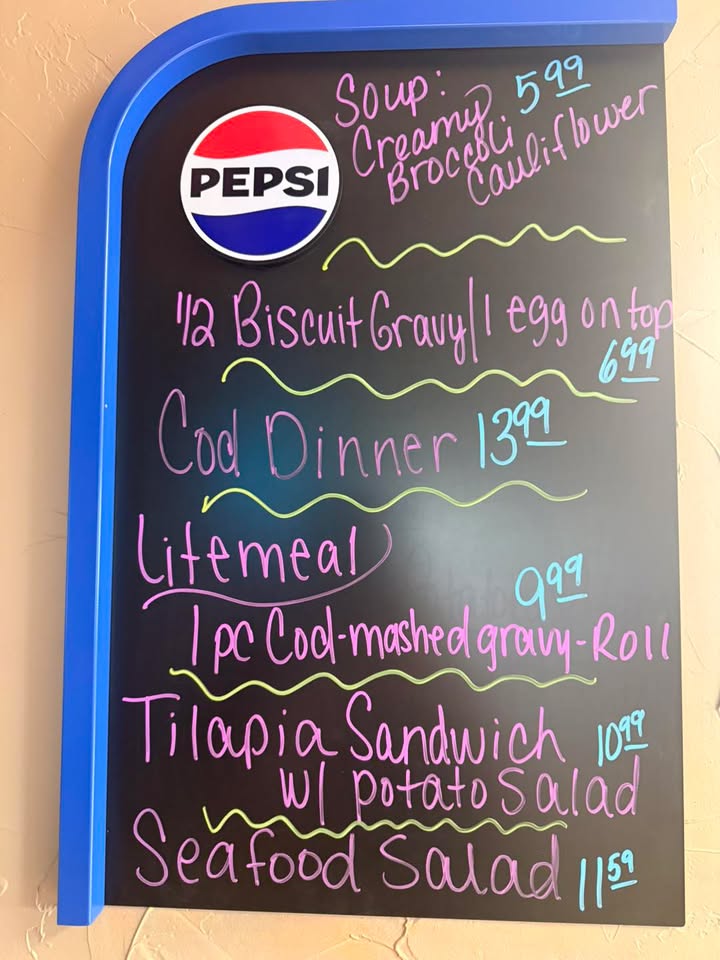 PEPSI
Soup: 5.99
Creamy
Broccoli
Cauliflower
1/2 Biscuit Gravy/1 egg on top
6.99
Cod Dinner 13.99
Litemeal
9.99
1 pc Cod-mashed gravy-Roll
Tilapia Sandwich 10.99
w/ potato Salad
Seafood Salad 11.59